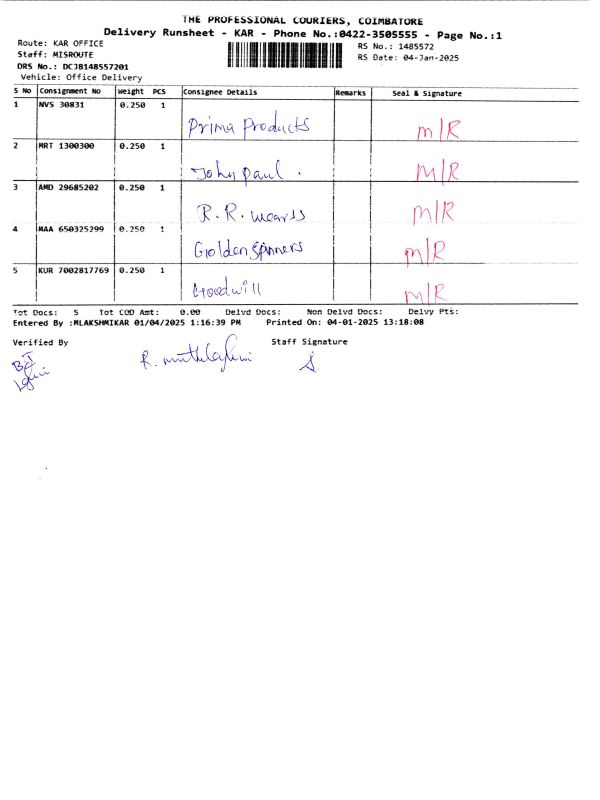 THE PROFESSIONAL COURIERS, COIMBATORE
Delivery Runsheet - KAR - Phone No.:0422-3505555 - Page No.:1
Route: KAR OFFICE
Staff: MISROUTE
DRS No.: DCJB148557201
Vehicle: Office Delivery
RS No.: 1485572
RS Date: 04-Jan-2025
S No Consignment No Weight PCS Consignee Details Remarks Seal & Signature
1 NVS 30831 0.250 1
Prima Products M/R
2 MRT 1300300 0.250 1
John paul . M/R
3 AMD 29685202 0.250 1
R.R. wearss M/R
4 MAA 650325299 0.250 1
Golden Spinners M/R
5 KUR 7002817769 0.250 1
Goodwill M/R
Tot Docs: 5 Tot COD Amt: 0.00 Delvd Docs: Non Delvd Docs: Delvy Pts:
Entered By :MLAKSHMIKAR 01/04/2025 1:16:39 PM Printed On: 04-01-2025 13:18:08
Verified By Staff Signature